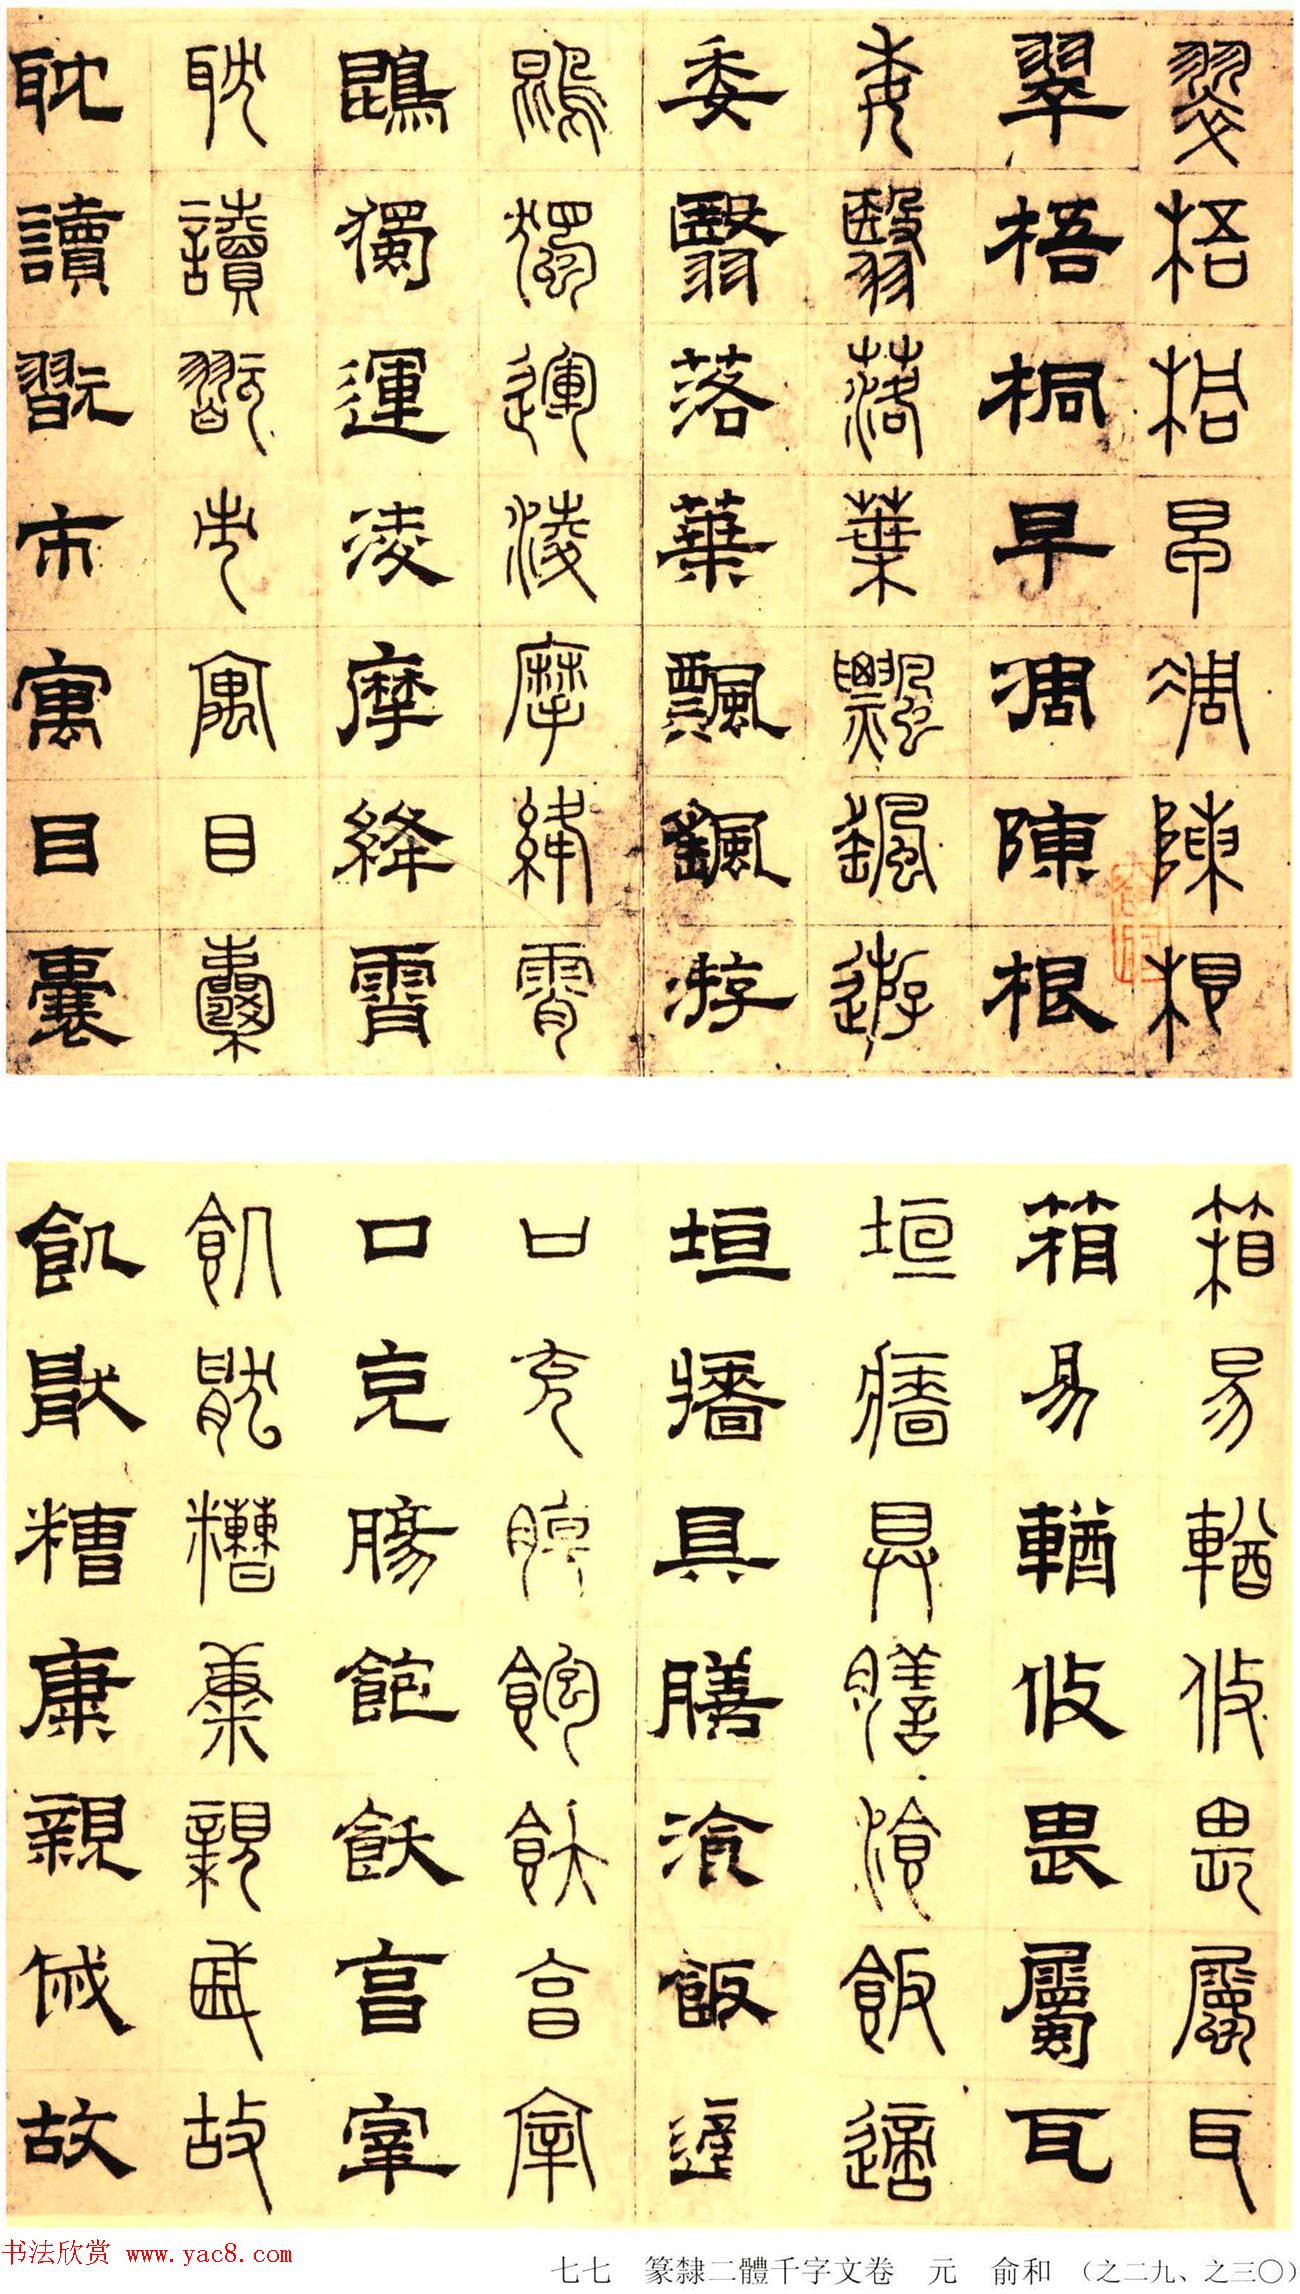 翠梧桐早凋陳根
翠梧桐早凋陳根
委翳落葉飄颻遊
委翳落葉飄颻游
鵾獨運凌摩絳霄
鵾獨運凌摩絳霄
耽讀翫市寓目囊
耽讀翫市寓目囊
箱易輶攸畏屬耳
箱易輶攸畏屬耳
垣牆具膳飡飯適
垣牆具膳飡飯適
口充腸飽飫享宰
口充腸飽飫享宰
飢猒糟糠親戚故
飢猒糟康親戚故
书法欣赏 www.yac8.com
七七 篆隸二體千字文卷 元 俞和 （之二九、之三〇）